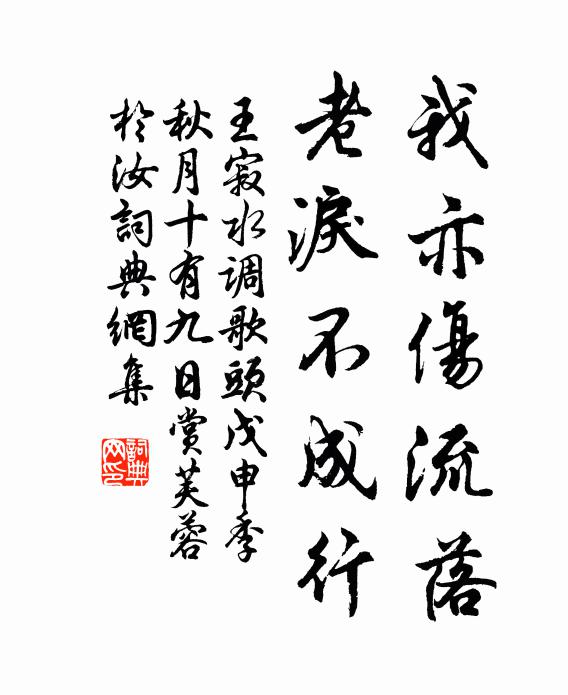 我亦傷流落
老淚不成行
王寂水调歌頭戊申季
秋月十有九日賞芙蓉
於汝詞典網集
詞典
网印